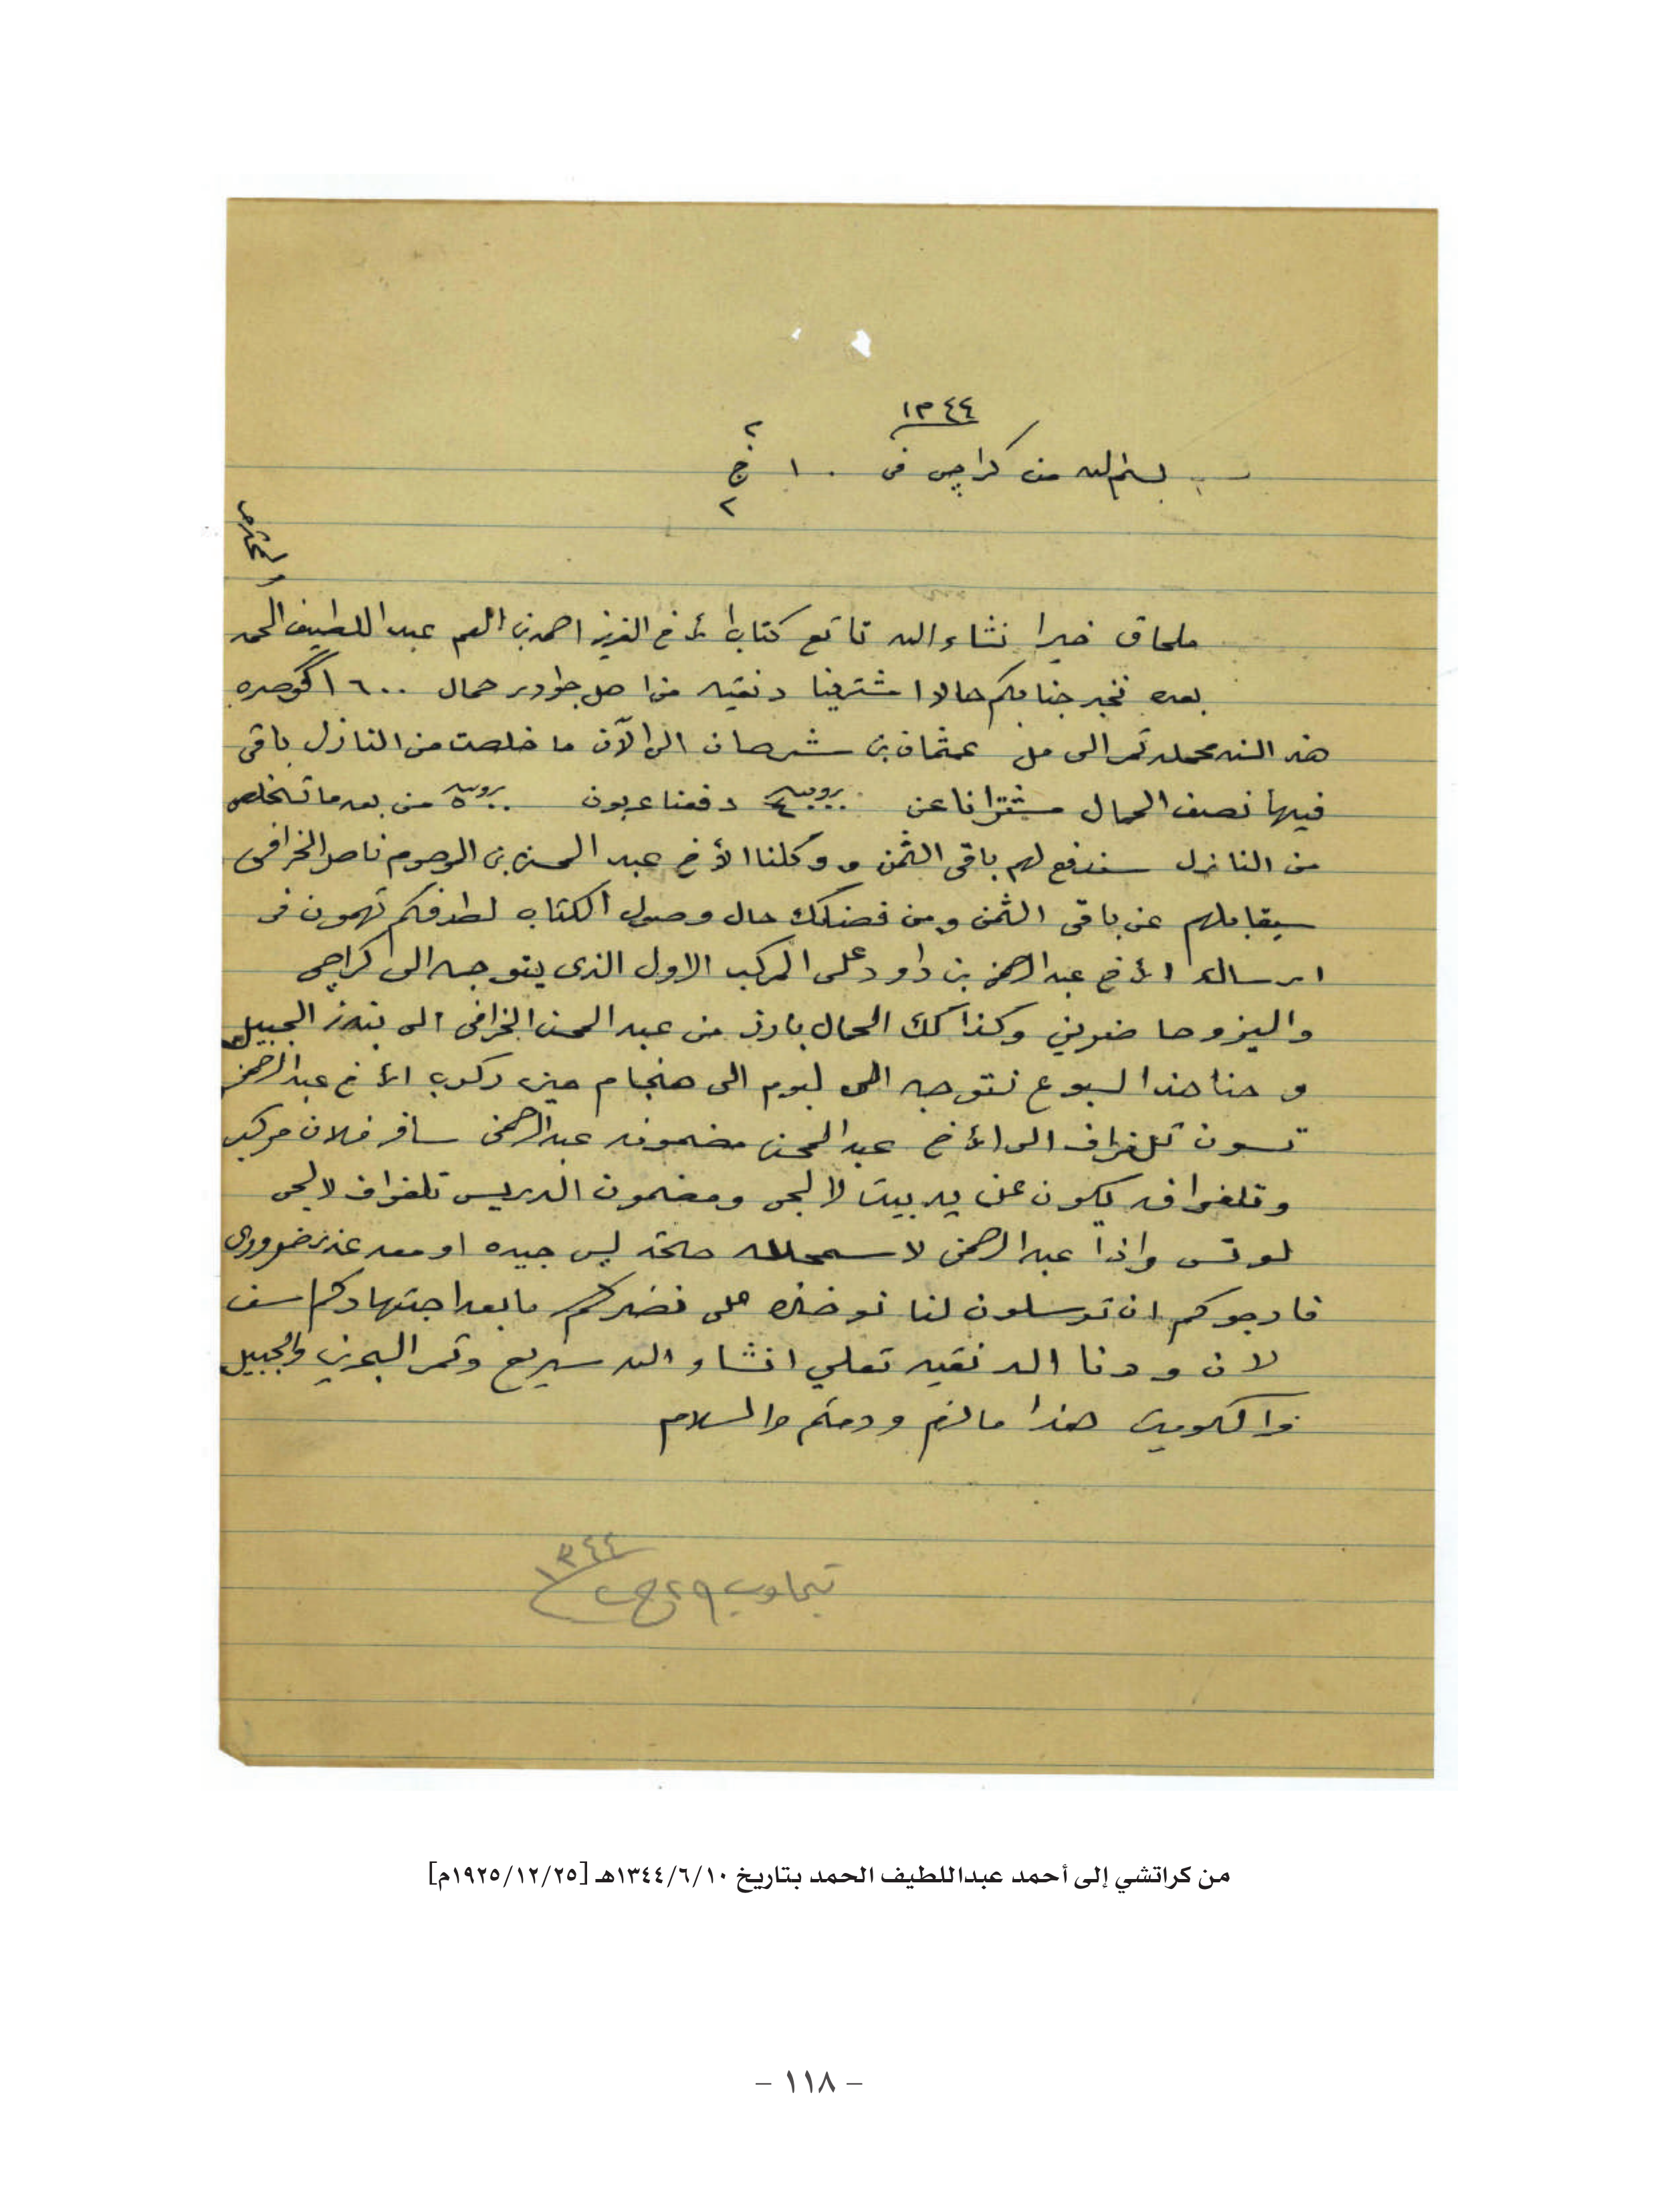 ١٣٤٤
بسم الله من كراچي في ١٠ ج ٢
والمحترم
ملحاق خيرا نشاء الله تاتع كتاب الأخ العزيز احمد بن العم عبد اللطيف الحمد
بعده نخبر جنابكم حالا اشترينا دنقيه من اهل جوادر حمال ١٦٠٠ گوصره
هذه السنه محمله تمر الى مل عثمان بن شرهان الى الآن ما خلصت من النازل باقي
فيها نصف الحمال مشترانا عن روبيه دفعنا عربون روبيه من بعد ما تخلص
من النازل سندفع لهم باقي الثمن ووكلنا الأخ عبد المحسن بن المرحوم ناصر الخرافي
سيقابلهم عن باقي الثمن ومن فضلك حال وصول الكتاب لطرفكم تهمون في
ارسال الأخ عبد الرحمن بن داود على المركب الاول الذي يتوجه الى كراچي
واليزوها ضروني وكذالك الحمال بارز من عبد المحسن الخرافي الى بندر الجبيل
وحنا هذا السبوع نتوجه الى لبوم الى هنجام حين ركوب الأخ عبد الرحمن
تسون تلغراف الى الأخ عبد المحسن مضمونه عبد الرحمن سافر فلان مركب
وتلغرافه يكون عن يد بيت لالجي ومضمون الدريس تلغراف لالجي
لوتس واذا عبد الرحمن لا سمح الله صحته ليس جيده او معه عذر ضروري
فارجوكم ان ترسلون لنا نوخذه على نضركم ما بعد اجتهادكم سف
لان ودنا الدنقيه تعلي انشاء الله سريع وتمر البحرين والجبيل
والكويت هذا ما لزم ودمتم والسلام
تجاوب ٢٩ ج ٢ ١٣٤٤
من كراتشي إلى أحمد عبداللطيف الحمد بتاريخ ١٣٤٤/٦/١٠هـ [١٩٢٥/١٢/٢٥م]
– ١١٨ –